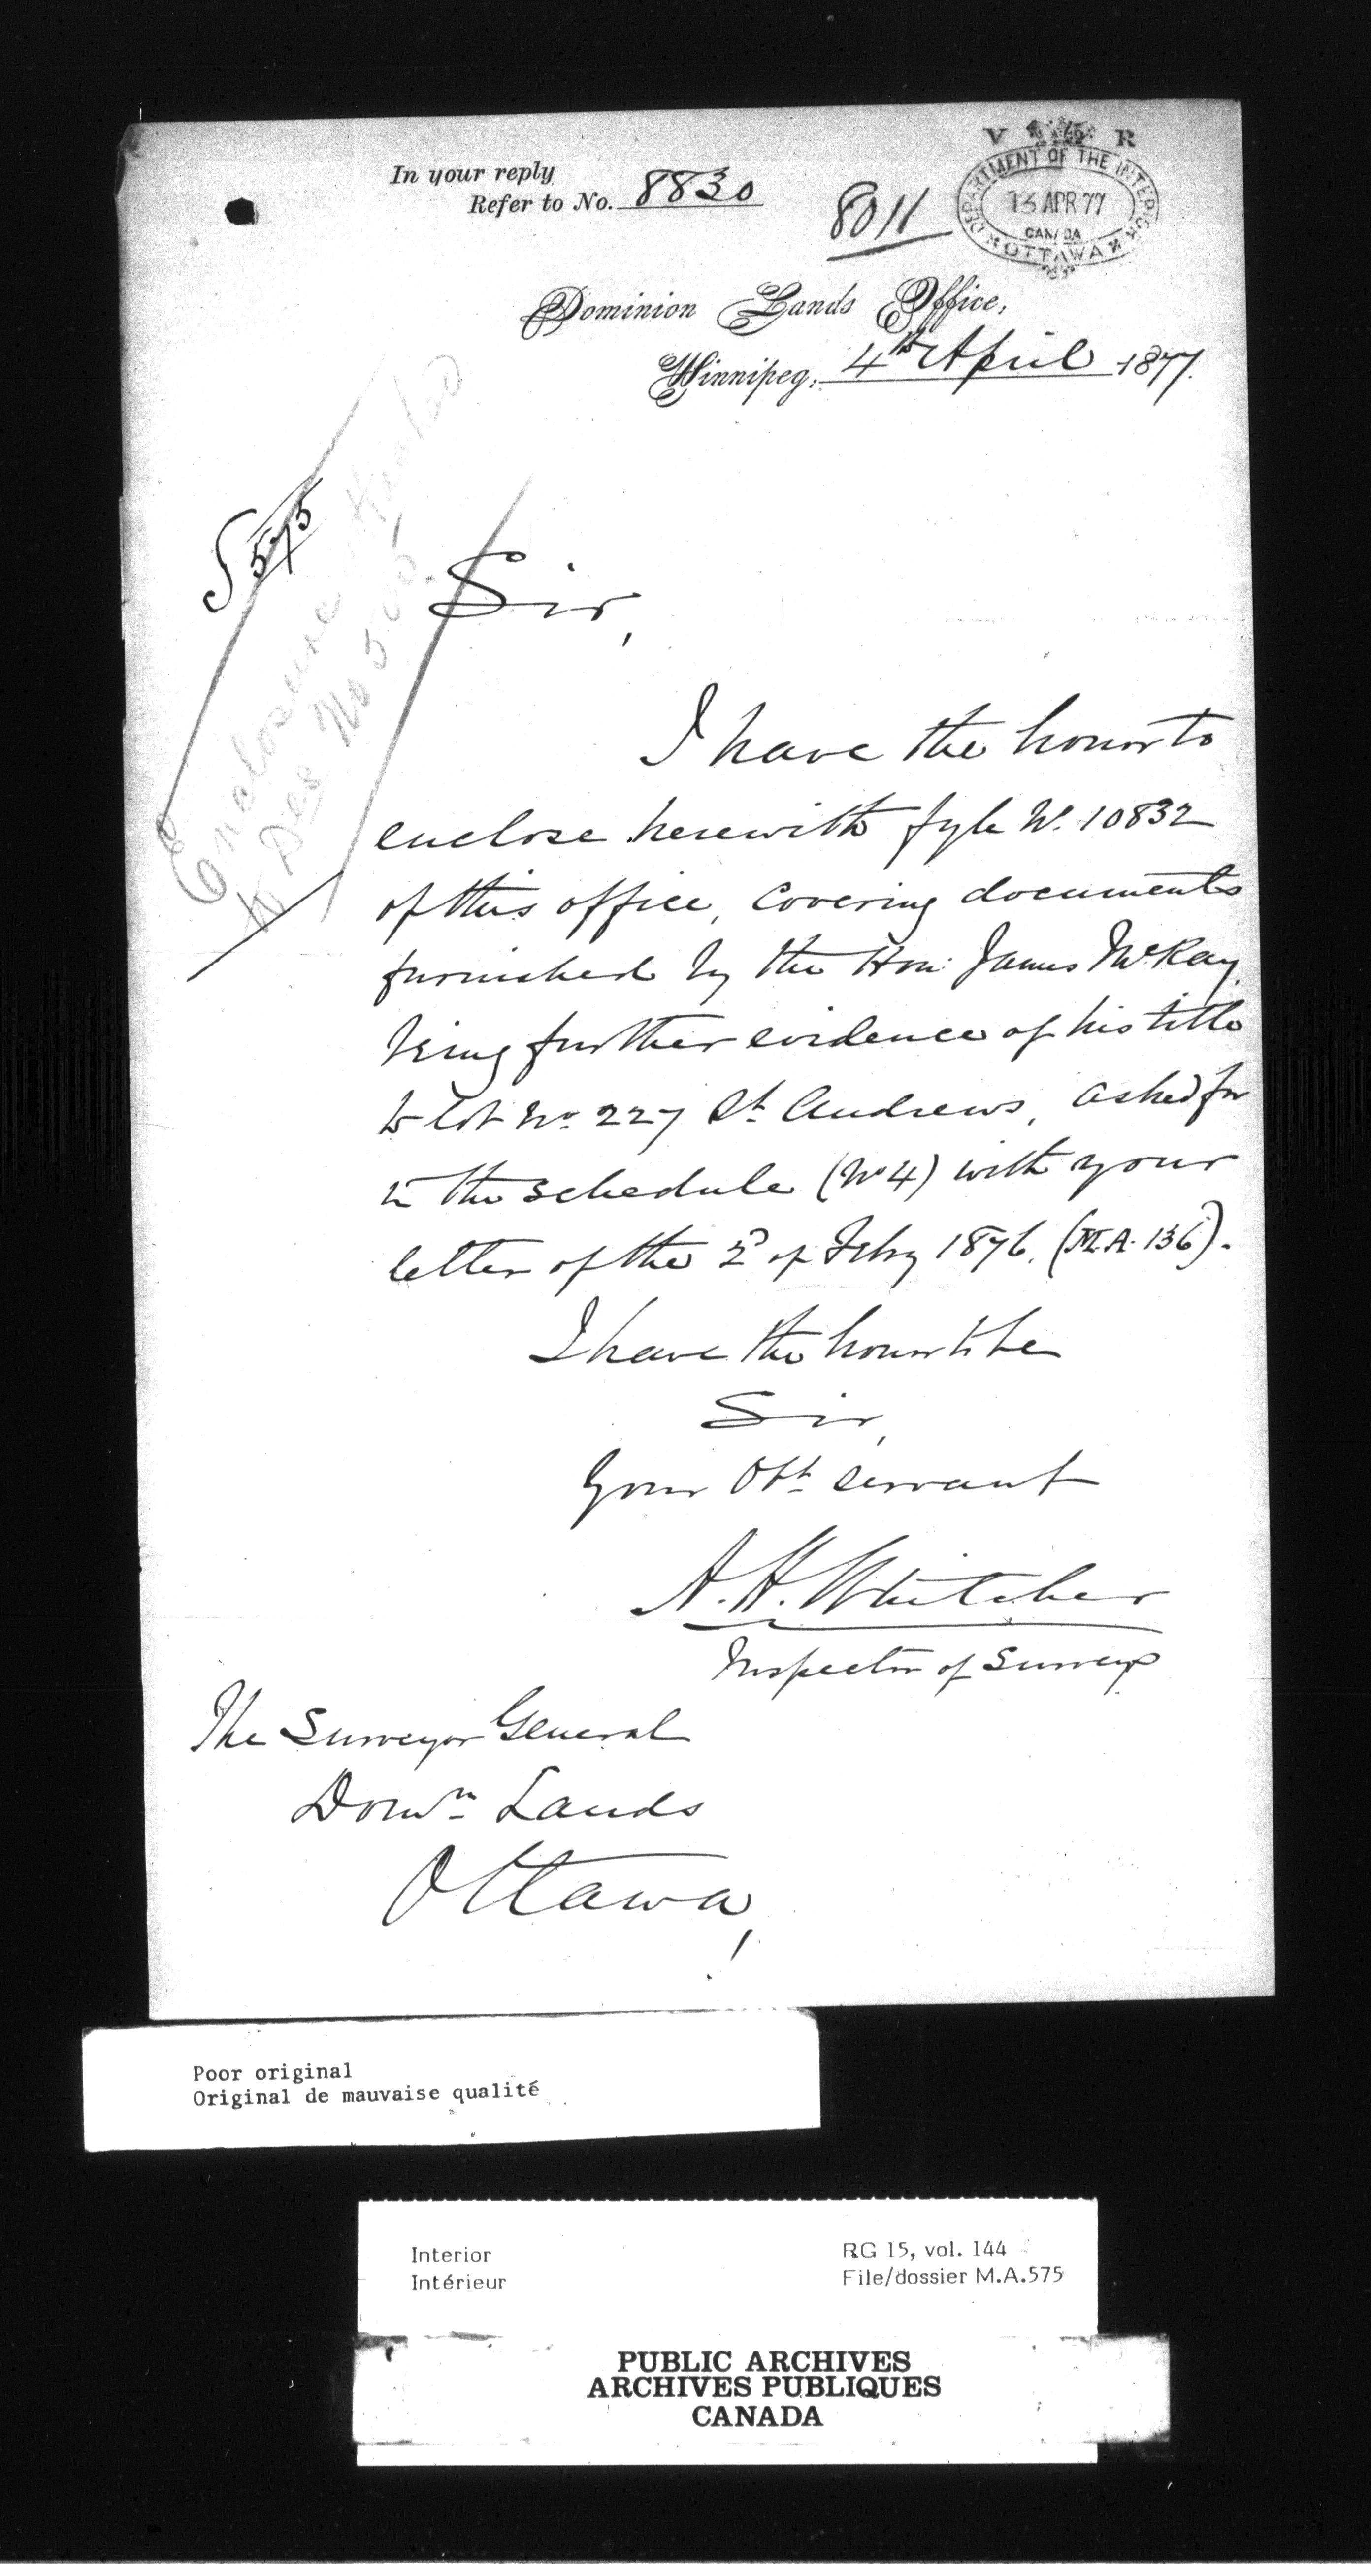 In your reply
Refer to No. 8830
8011
V R
DEPARTMENT OF THE INTERIOR
13 APR 77
CANADA
OTTAWA
Dominion Lands Office,
Winnipeg, 4th April 1877.
575
Enclosure
to Des No 505.
Sir,
I have the honor to
enclose herewith fyle No. 10832
of this office, covering documents
furnished by the Hon: James McKay,
being further evidence of his title
to lot No. 227 St. Andrews, asked for
in the schedule (No 4) with your
letter of the 2d of Feby 1876. (M.A. 136).
I have the honor to be
Sir,
Your Obt. servant
A. H. Whitcher
Inspector of Surveys
The Surveyor General
Domn. Lands
Ottawa,
Poor original
Original de mauvaise qualité
Interior
Intérieur
RG 15, vol. 144
File/dossier M.A.575
PUBLIC ARCHIVES
ARCHIVES PUBLIQUES
CANADA